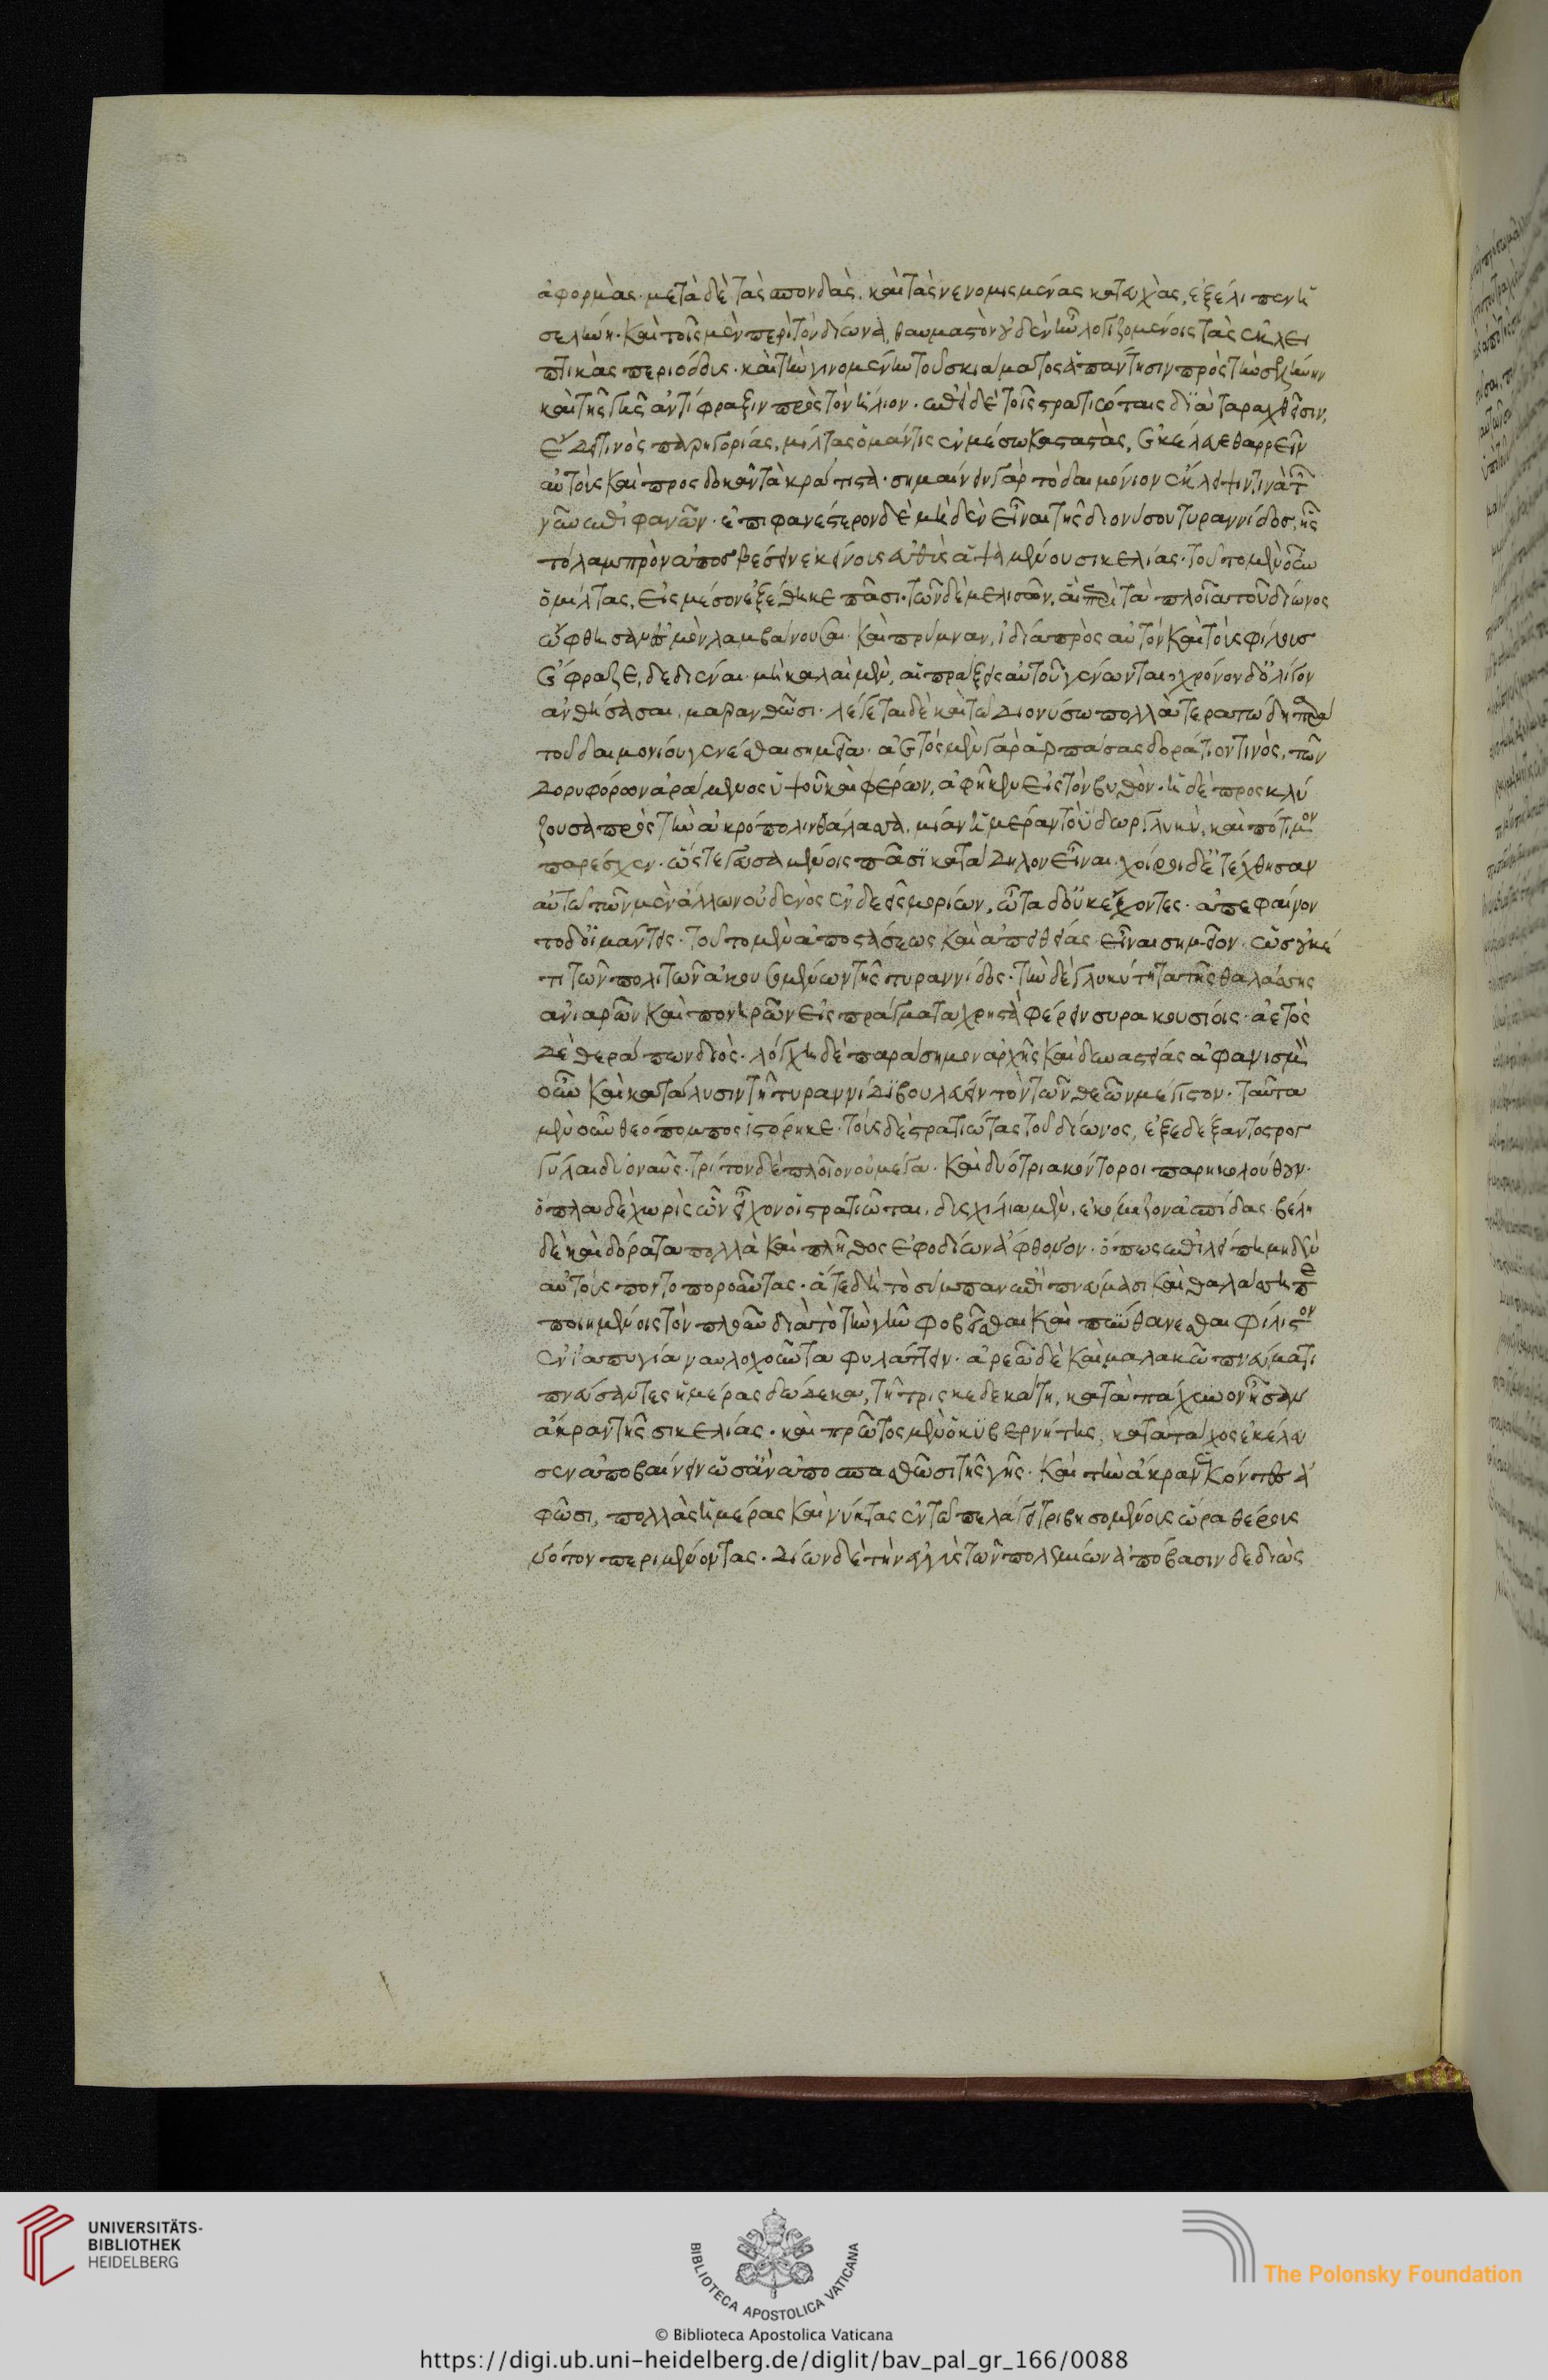 ἀφορμὰς· μετὰ δὲ τὰς σπονδὰς, καὶ τὰς νενομισμένας κατευχὰς, ἐξέλιπεν ἡ
σελήνη. καὶ τοῖς μὲν περὶ τὸν δίωνα, θαυμαστὸν οὐδὲν ἦν λογιζομένοις τὰς ἐκλει
πτικὰς περιόδους· καὶ τὴν γινομένην τοῦ σκιάσματος ἀπάντησιν πρὸς τὴν σελήνην
καὶ τῆς γῆς ἀντίφραξιν πρὸς τὸν ἥλιον. ἐπεὶ δὲ τοῖς στρατιώταις διαταραχθεῖσιν,
ἔδει τινὸς παρηγορίας, μίλτας ὁ μάντις ἐν μέσω καταστὰς, ἐκέλευε θαρρεῖν
αὐτοὺς καὶ προσδοκᾶν τὰ κράτιστα· σημαίνειν γὰρ τὸ δαιμόνιον ἔκλειψιν τινὰ τῶν
νῦν ἐπιφανῶν· ἐπιφανέστερον δὲ μηδὲν εἶναι τῆς διονύσου τυραννίδος, ἧς
τὸ λαμπρὸν ἀποσβέσειν ἐκείνους εὐθὺς ἁψαμένους σικελίας· τοῦτο μὲν οὖν
ὁ μίλτας, εἰς μέσον ἐξέθηκε πᾶσι· τῶν δὲ μελισσῶν, αἳ περὶ τὰ πλοῖα τοῦ δίωνος
ὤφθησαν ἑσμὸν λαμβάνουσαι καὶ πρύμναν, ἰδία πρὸς αὐτὸν καὶ τοὺς φίλους
ἔφραζε, δεδιέναι μὴ καλαὶ μὲν, αἱ πράξεις αὐτοῦ γένωνται, χρόνον δ' ὀλίγον
ἀνθήσασαι, μαρανθῶσι· λέγεται δὲ καὶ τῶ διονύσω πολλὰ τερατώδη παρὰ
τοῦ δαιμονίου γενέσθαι σημεῖα· ἀετὸς μὲν γὰρ ἁρπάσας δοράτιόν τινος, τῶν
δορυφόρων ἀράμενος ὑψοῦ καὶ φέρων, ἀφῆκεν εἰς τὸν βυθόν· ἡ δὲ προσκλύ
ζουσα πρὸς τὴν ἀκρόπολιν θάλασσα, μίαν ἡμέραν τὸ ὕδωρ γλυκὺ, καὶ πότιμον
παρέσχεν· ὥστε γευσαμένοις πᾶσι κατάδηλον εἶναι· χοῖροι δ' ἐτέχθησαν
αὐτῶ τῶν μὲν ἄλλων οὐδενὸς ἐνδεεῖς μορίων, ὦτα δ' οὐκ ἔχοντες· ἀπεφαίνον
το δ' οἱ μάντεις· τοῦτο μὲν ἀποστάσεως καὶ ἀπειθείας εἶναι σημεῖον· ὡς οὐκέ
τι τῶν πολιτῶν ἀκουσομένων τῆς τυραννίδος· τὴν δὲ γλυκύτητα τῆς θαλάσσης
ἀνιαρῶν καὶ πονηρῶν εἰς πράγματα χρηστὰ φέρειν συρακουσίοις· ἀετὸς
δὲ θεράπων διός· λόγχη δὲ παράσημον ἀρχῆς καὶ δυναστείας ἀφανισμὸν
οὖν καὶ κατάλυσιν τῆ τυραννίδι βουλεύειν τὸν τῶν θεῶν μέγιστον. ταῦτα
μὲν οὖν θεόπομπος ἱστόρηκε· τοὺς δὲ στρατιώτας τοῦ δίωνος, ἐξεδέξαντο στρογ
γύλαι δύο ναῦς· τρίτον δὲ πλοῖον οὐ μέγα· καὶ δύο τριακόντοροι παρηκολούθουν·
ὅπλα δὲ χωρὶς ὧν εἶχον οἱ στρατιῶται, δισχιλίας μὲν, ἐκόμιζον ἀσπίδας· βέλη
δὲ καὶ δόρατα πολλὰ καὶ πλῆθος ἐφοδίων ἄφθονον· ὅπως ἐπιλείπη μηδὲν
αὐτοὺς ποντοποροῦντας· ἅτε δὴ τὸ σύμπαν ἐπὶ πνεύμασι καὶ θαλάσση πε
ποιημένοις τὸν πλοῦν διὰ τὸ τὴν γῆν φοβεῖσθαι καὶ πυνθάνεσθαι φίλιστον
ἐν ἰαπυγία ναυλοχοῦντα φυλάττειν· ἀραιῶ δὲ καὶ μαλακῶ πνεύματι
πλεύσαντες ἡμέρας δώδεκα, τῆ τρισκεδεκάτη, κατὰ πάχυνον ἦσαν
ἄκραν τῆς σικελίας· καὶ πρῶτος μὲν ὁ κυβερνήτης, κατὰ τάχος ἐκέλευ
σεν ἀποβαίνειν ὡς ἂν ἀποσπασθῶσι τῆς γῆς· καὶ τὴν ἄκραν ἑκόντες ἀ
φῶσι, πολλὰς ἡμέρας καὶ νύκτας ἐν τῶ πελάγει τριβησομένοις ὥρα θέρους
νότον περιμένοντας· δίων δὲ τὴν ἐγγὺς τῶν πολεμίων ἀπόβασιν δεδιὼς
UNIVERSITÄTS-
BIBLIOTHEK
HEIDELBERG
BIBLIOTECA APOSTOLICA VATICANA
© Biblioteca Apostolica Vaticana
The Polonsky Foundation
https://digi.ub.uni-heidelberg.de/diglit/bav_pal_gr_166/0088